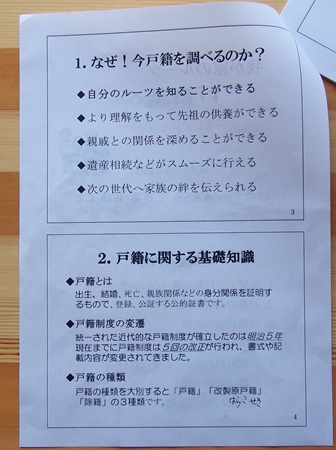 1. なぜ！今戸籍を調べるのか？
◆自分のルーツを知ることができる
◆より理解をもって先祖の供養ができる
◆親戚との関係を深めることができる
◆遺産相続などがスムーズに行える
◆次の世代へ家族の絆を伝えられる
3
2. 戸籍に関する基礎知識
◆戸籍とは
出生、結婚、死亡、親族関係などの身分関係を証明す
るもので、登録、公証する公的証書です。
◆戸籍制度の変遷
統一された近代的な戸籍制度が確立したのは明治５年
現在までに戸籍制度は５回の改正が行われ、書式や記
載内容が変更されてきました。
◆戸籍の種類
戸籍の種類を大別すると「戸籍」「改製原戸籍」
「除籍」の３種類です。
4